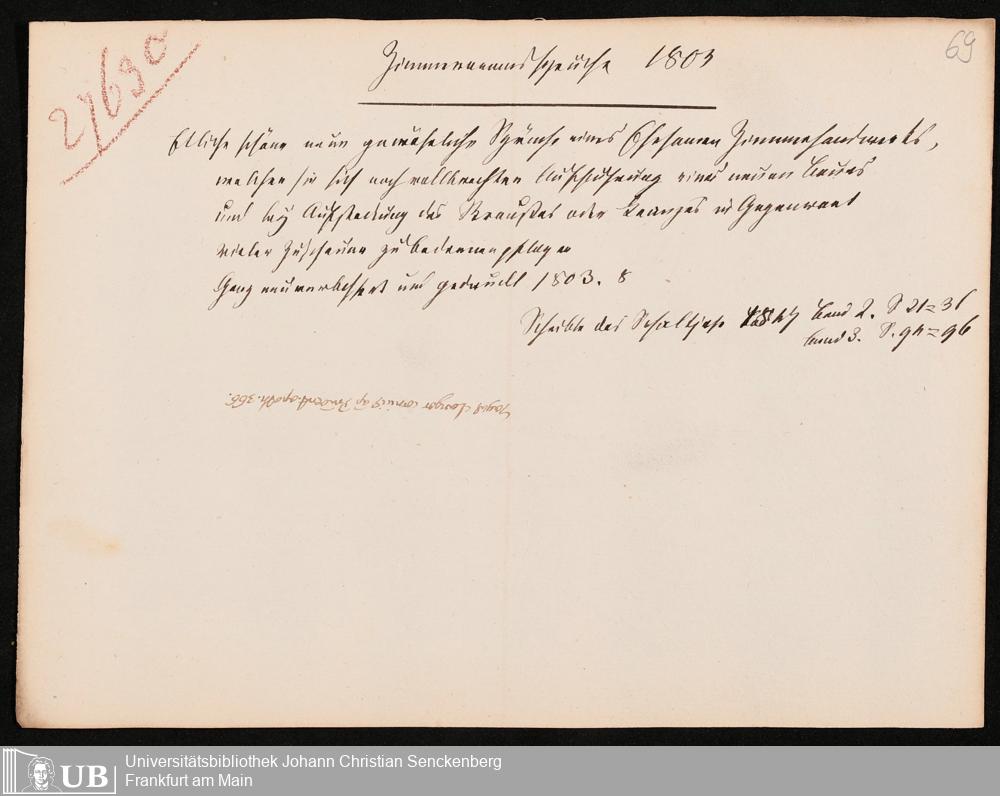 27690
69
Zimmermannssprüche 1803
Etliche schöne neue gewöhnliche Sprüche eines Ehrsamen Zimmerhandwerks,
welchen sie sich nach vollbrachten Aufführung eines neuen Baues
und bey Aufsteckung des Straußes oder Kranzes in Gegenwart
vieler Zuschauer zu bedienen pflegen
Ganz neu verbessert und gedruckt 1803. 8
Scheible das Schaltjahr 1847 Band 2. S 21=31
Band 3. S. 94=96
366.
Universitätsbibliothek Johann Christian Senckenberg
Frankfurt am Main
UB